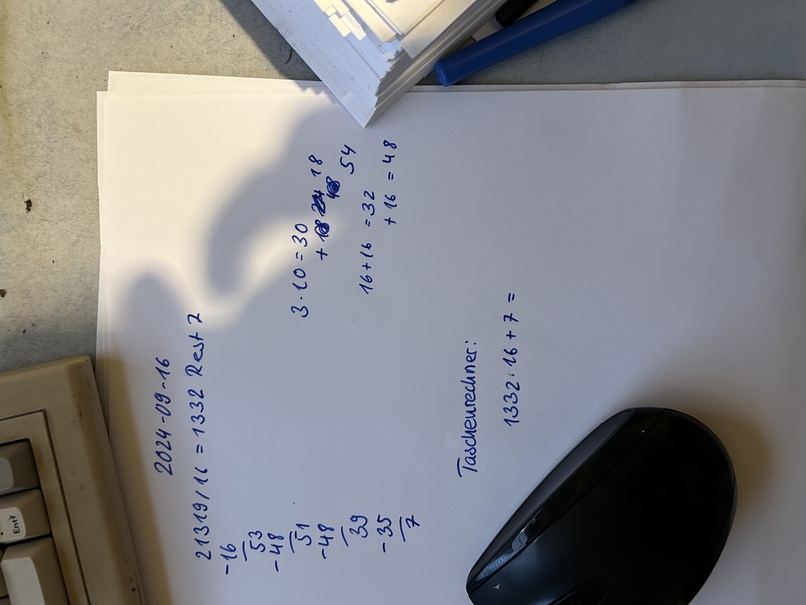 2024-09-16
21319/16 = 1332 Rest 7
-16
53
-48
51
-48
39
-35
7
3·10=30
+ 18
54
16+16 = 32
+ 16 = 48
Taschenrechner:
1332·16+7 =